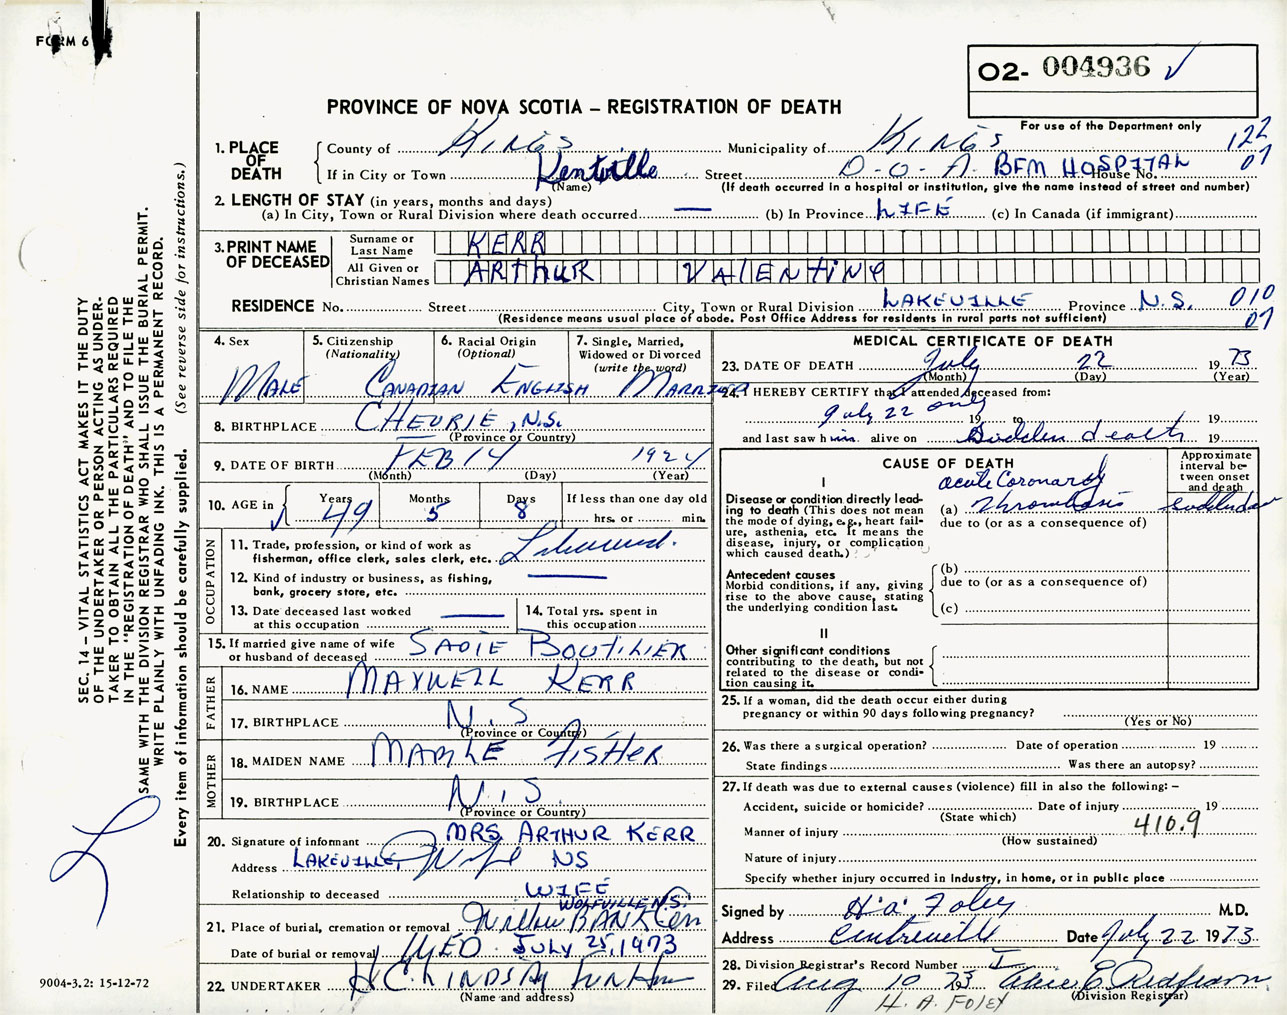 FORM 6
O2- 004936 ✓
PROVINCE OF NOVA SCOTIA – REGISTRATION OF DEATH
For use of the Department only
122
07
1. PLACE OF DEATH
County of KINGS Municipality of KINGS
If in City or Town Kentville (Name) Street D.O.A. BFM HOSPITAL House No.
(If death occurred in a hospital or institution, give the name instead of street and number)
2. LENGTH OF STAY (in years, months and days)
(a) In City, Town or Rural Division where death occurred — (b) In Province LIFE (c) In Canada (if immigrant)
3. PRINT NAME OF DECEASED
Surname or Last Name KERR
All Given or Christian Names ARTHUR VALENTINE
RESIDENCE No. Street City, Town or Rural Division LAKEVILLE Province N.S. 010
(Residence means usual place of abode. Post Office Address for residents in rural parts not sufficient) 07
4. Sex MALE
5. Citizenship (Nationality) CANADIAN
6. Racial Origin (Optional) ENGLISH
7. Single, Married, Widowed or Divorced (write the word) MARRIED
8. BIRTHPLACE CHEVRIE, N.S.
(Province or Country)
9. DATE OF BIRTH FEB 14 1924
(Month) (Day) (Year)
10. AGE in Years 49 Months 5 Days 8 If less than one day old hrs. or min.
OCCUPATION
11. Trade, profession, or kind of work as fisherman, office clerk, sales clerk, etc.
12. Kind of industry or business, as fishing, bank, grocery store, etc. —
13. Date deceased last worked at this occupation —
14. Total yrs. spent in this occupation
15. If married give name of wife or husband of deceased SADIE BOUTILIER
FATHER
16. NAME MAXWELL KERR
17. BIRTHPLACE N.S
(Province or Country)
MOTHER
18. MAIDEN NAME MABLE FISHER
19. BIRTHPLACE N.S
(Province or Country)
20. Signature of informant MRS. ARTHUR KERR
Address LAKEVILLE, NS
Relationship to deceased WIFE
WOLFVILLE N.S.
21. Place of burial, cremation or removal Willow BANK Cem
Date of burial or removal WED. JULY 25, 1973
22. UNDERTAKER H C LINDSAY FUN Hm
(Name and address)
MEDICAL CERTIFICATE OF DEATH
23. DATE OF DEATH July 22 1973
(Month) (Day) (Year)
24. I HEREBY CERTIFY that I attended deceased from:
July 22 only 19 to 19
and last saw him alive on Sudden death 19
CAUSE OF DEATH
Approximate interval between onset and death
I
Disease or condition directly leading to death (This does not mean the mode of dying, e.g., heart failure, asthenia, etc. It means the disease, injury, or complication which caused death.)
(a) acute Coronary Thrombosis
due to (or as a consequence of)
Antecedent causes
Morbid conditions, if any, giving rise to the above cause, stating the underlying condition last.
(b)
due to (or as a consequence of)
(c)
II
Other significant conditions
contributing to the death, but not related to the disease or condition causing it.
25. If a woman, did the death occur either during pregnancy or within 90 days following pregnancy?
(Yes or No)
26. Was there a surgical operation? Date of operation 19
State findings Was there an autopsy?
27. If death was due to external causes (violence) fill in also the following: –
Accident, suicide or homicide? Date of injury 19
(State which)
Manner of injury 410.9
(How sustained)
Nature of injury
Specify whether injury occurred in Industry, in home, or in public place
Signed by H.A. Foley M.D.
Address Centreville Date July 22 1973
28. Division Registrar's Record Number
29. Filed Aug 10 73
(Division Registrar)
H. A. FOLEY
SEC. 14 – VITAL STATISTICS ACT MAKES IT THE DUTY
OF THE UNDERTAKER OR PERSON ACTING AS UNDER-
TAKER TO OBTAIN ALL THE PARTICULARS REQUIRED
IN THE "REGISTRATION OF DEATH" AND TO FILE THE
SAME WITH THE DIVISION REGISTRAR WHO SHALL ISSUE THE BURIAL PERMIT.
WRITE PLAINLY WITH UNFADING INK. THIS IS A PERMANENT RECORD.
Every item of information should be carefully supplied. (See reverse side for instructions.)
9004-3.2: 15-12-72